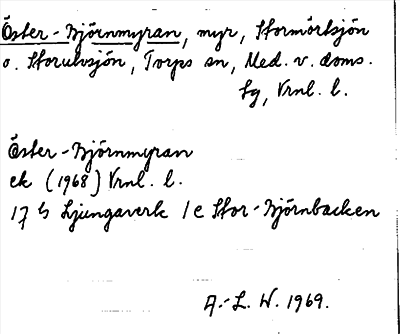 Öster-Björnmyran, myr, Stormörtsjön
o. Storulvsjön, Torps sn, Med. v. doms.
sg, Vrnl. l.
Öster-Björnmyran
ek (1968) Vrnl. l.
17 h Ljungaverk 1 e Stor-Björnbacken
A.-L. W. 1969.